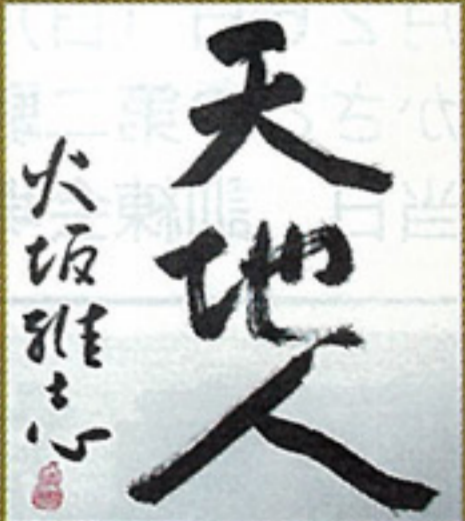 天地人
火坂雅志